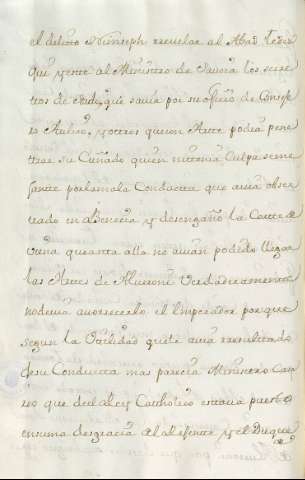 el delicto Nimseph revuelar al Abad
que y ente al Ministro de Savoia los secre
tos de que savia por su oficio de Conseje
ro Aulico, y otros que con Arte podia pene
trar su Cuñado quien ni tenia Culpa seme
jante por la mala Conducta que avia obser
vado en aBenecia y desengañó la Corte de
viena que anta alla no avian podido llegar
las Artes de Alveroni Verdaderamente
no devia avorrecerlo el Emperador por que
segun la Vtilidad que le avia resultado
de su Conducta mas parecia Ministro Cesa
reo que del Rey Catholico estava puesto
en suma desgracia el Alifonte y el Duque